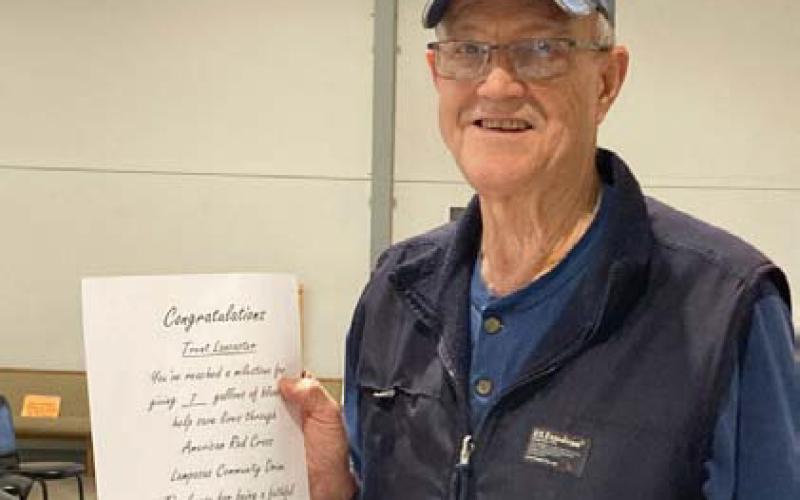 Congratulations
Trent Lancaster
You've reached a milestone for
giving 7 gallons of bloo
help save lives through
American Red Cross
Lampasas Community Drive
being a faithful